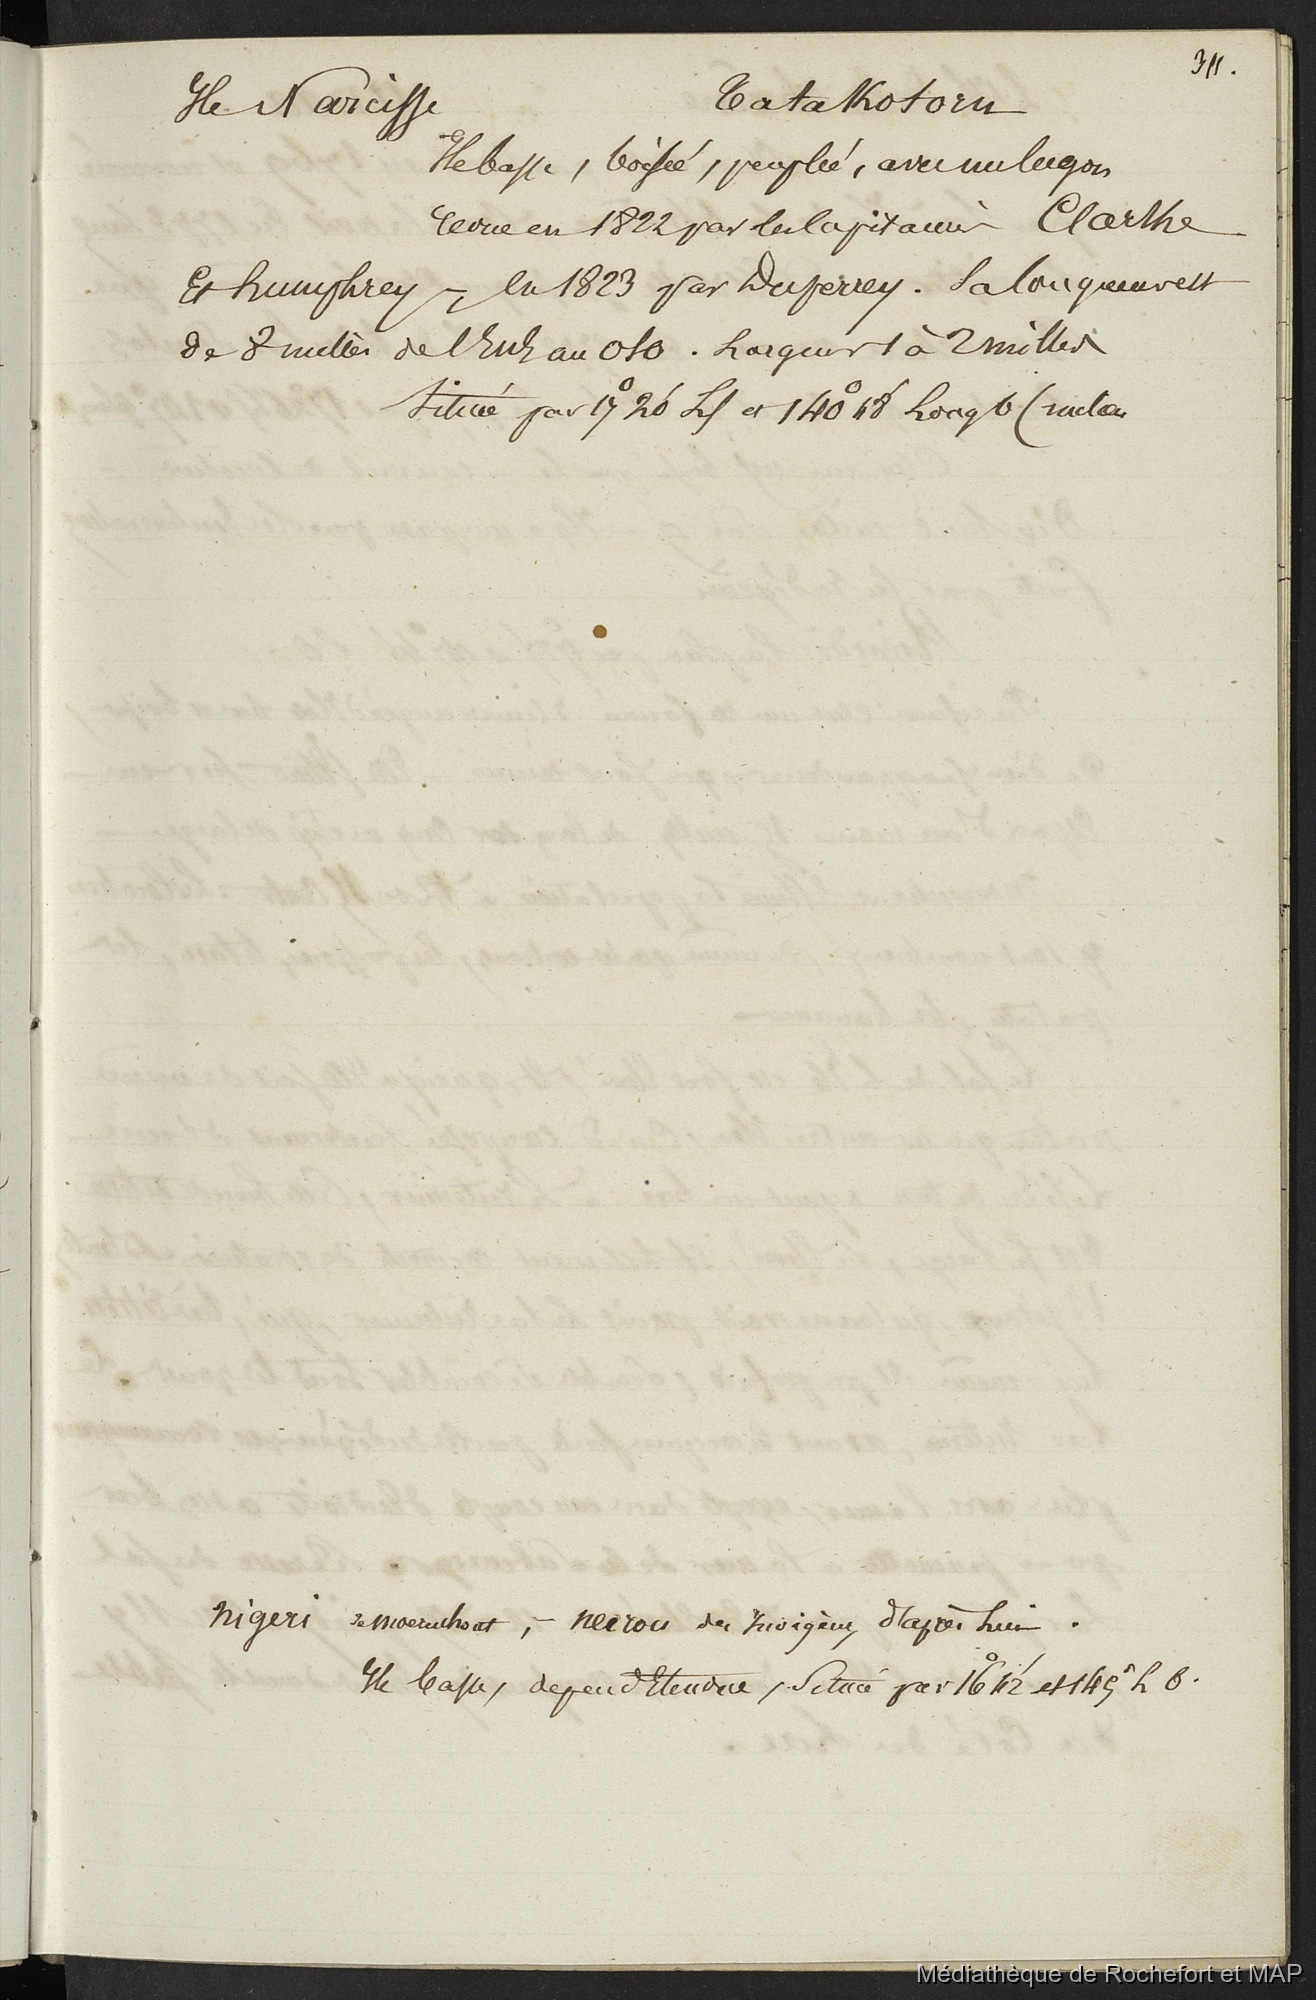 311.
Ile Narcisse Tatakotorou
Ile basse, boisée, peuplée, avec un lagon
revue en 1822 par les Capitaines Clarke
Et humphrey -, en 1823 par Duperrey. Sa longueur est
de 8 milles de l'ENE au OSO. Largeur 1 à 2 milles
Située par 17° 20' Ls et 140° 48' Long o (milieu
nigeri de moerenhout, - neirou des Indigènes, d'après lui.
Ile basse, de peu d'Etendue, Située par 16° 42' et 145° L O.
Médiathèque de Rochefort et MAP